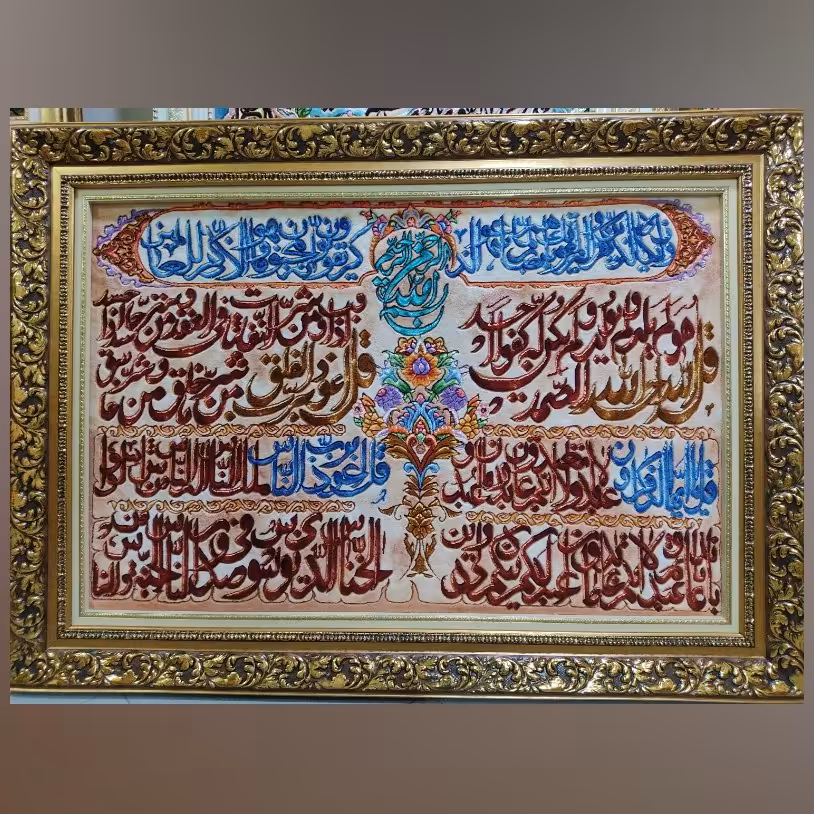 بسم الله الرحمن الرحيم
وان يكاد الذين كفروا ليزلقونك بابصارهم لما سمعوا الذ
كر و يقولون انه لمجنون و ما هو الا ذكر للعالمين
قل هو الله احد الله الصمد
لم يلد ولم يولد ولم يكن له كفوا احد
قل اعوذ برب الفلق من شر ما خلق و من شر غاسق
اذا وقب و من شر النفاثات في العقد و من شر حاسد اذا حسد
قل يا ايها الكافرون لا اعبد ما تعبدون ولا انتم عابدون ما اعبد
ولا انا عابد ما عبدتم ولا انتم عابدون ما اعبد لكم دينكم ولي دين
قل اعوذ برب الناس ملك الناس اله الناس من شر الوسواس
الخناس الذي يوسوس في صدور الناس من الجنة والناس